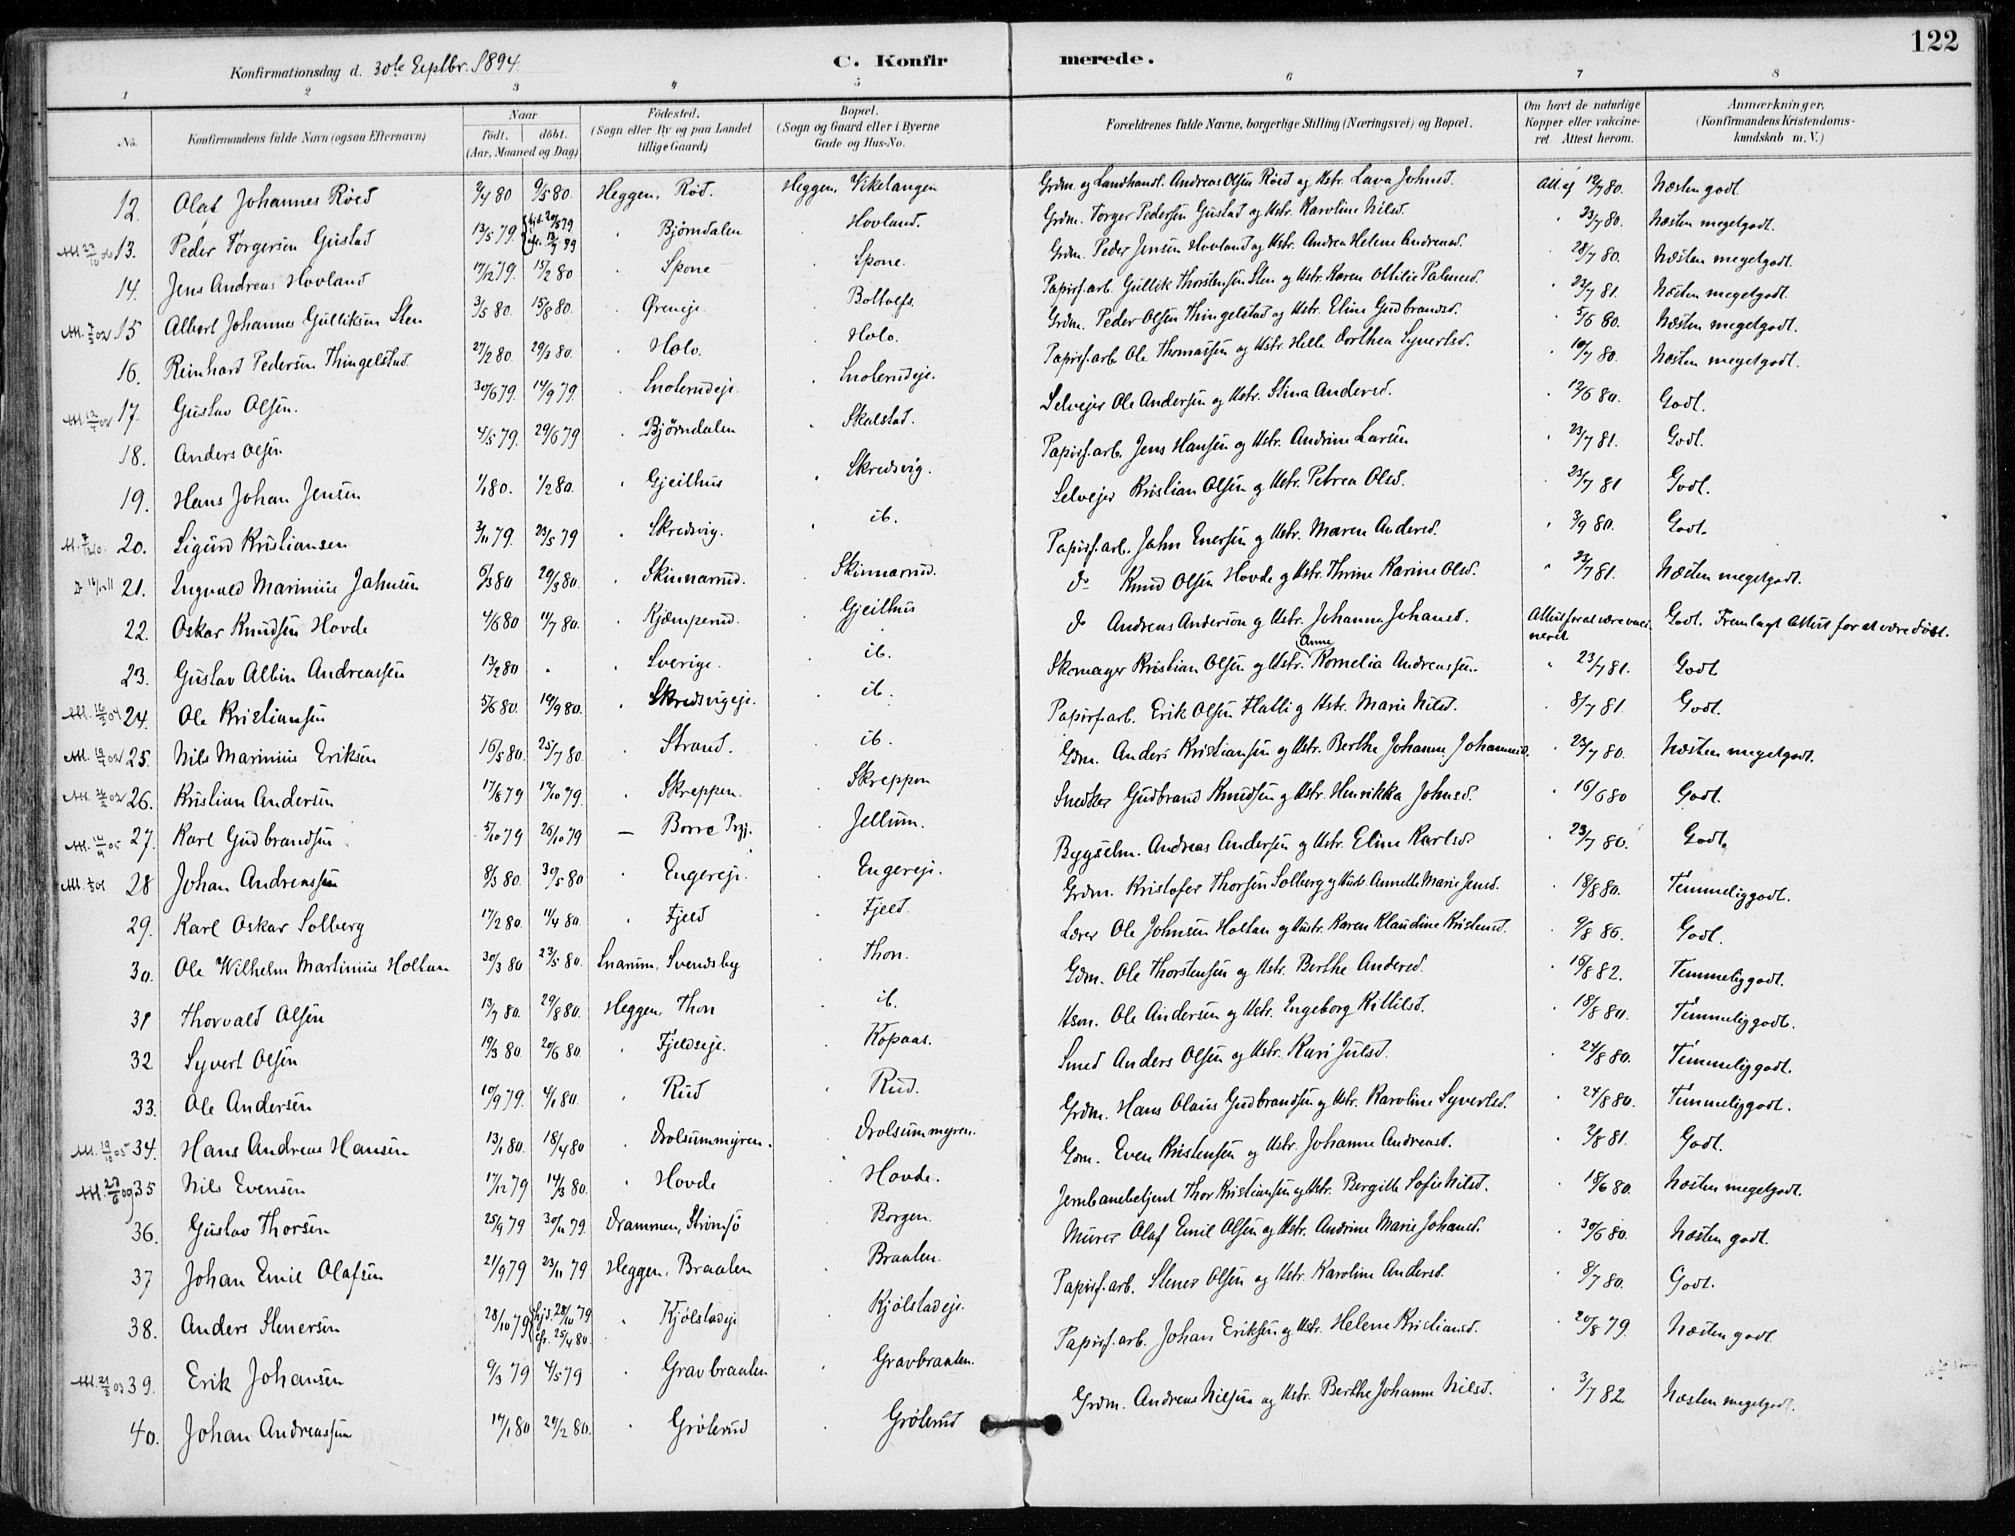 122
Konfirmationsdag d. 30te Septbr. 1894. C. Konfir merede.
1 2 3 4 5 6 7 8
No. Konfirmandens fulde Navn (ogsaa Efternavn) Naar født. døbt. (Aar, Maaned og Dag) Fødested. (Sogn eller By og paa Landet tillige Gaard) Bopæl. (Sogn og Gaard eller i Byerne Gade og Hus-No. Forældrenes fulde Navne, borgerlige Stilling (Næringsvei) og Bopæl. Om havt de naturlige Kopper eller vaccineret. Attest herom. Anmærkninger. (Konfirmandens Kristendomskundskab m. V.)
12. Olaf Johannes Röed 2/4 80 9/5 80. Heggen, Röd. Heggen, Vikelangen Grdm. og Landhandl. Andreas Olsen Röed og Hstr. Lava Johnsd. Att. af 12/7 80. Næsten godt.
13. Peder Torgersen Gustad 13/5 79. hjd. 20/5 79 " Bjørndalen " Hovland. Grdm. Torger Pedersen Gustad og Hstr. Karoline Nilsd. " 23/7 80. Næsten megetgodt.
14. Jens Andreas Hovland 17/12 79. 15/2 80 " Spone " Spone. Grdm. Peder Jensen Hovland og Hstr. Andrea Helene Andreasd. " 28/7 80. Næsten megetgodt.
15 Albert Johannes Gulliksen Sten 3/5 80. 15/8 80. " Øreneje " Bottolfs. Papirf.arb. Gullik Thorstensen Sten og Hstr. Karen Ottilie Palmesd. " 23/7 81. Næsten megetgodt.
16. Reinhard Pedersen Thingelstad. 27/2 80. 29/3 80. " Holo. " Holo. Grdm. Peder Olsen Thingelstad og Hstr. Eline Gudbrandsd. " 5/6 80. Næsten megetgodt.
17. Gustav Olsen. 30/6 79. 14/9 79. " Snolerudeje. " Snolerudeje. Papirf.arb Ole Thomassen og Hstr. Helle Dorthea Syvertsd. " 10/7 80. Næsten megetgodt.
18. Anders Olsen 4/5 79. 29/6 79 " Bjørndalen " Skalstad. Selvejer Ole Andersen og Hstr. Stina Andersd. " 12/6 80. Godt.
19. Hans Johan Jensen 1/1 80. 1/2 80. " Gjeithus " Skredsvig. Papirf.arb. Jens Hansen og Hstr. Andrine Larsen " 23/7 81. Godt.
20. Sigurd Kristiansen 3/11 79. 23/5 79 " Skredsvig. " ib. Selvejer Kristian Olsen og Hstr. Petrea Olsd. " 23/7 81 Godt.
21. Ingvald Marinius Jahnsen 6/3 80 29/3 80. " Skinnarud. " Skinnarud. Papirf.arb. Jahn Enersen og Hstr. Maren Andersd. " 3/9 80. Godt.
22. Oskar Knudsen Hovde 4/6 80 11/7 80. " Kjæmperud. " Gjeithus do Knud Olsen Hovde og Hstr. Thrine Karine Olsd. " 23/7 81. Næsten megetgodt.
23. Gustav Albin Andreassen 13/2 80 " " Sverige. " ib. do Andreas Anderson og Hstr. Johanna Johansd. Attest for at være vaccineret Godt. Fremlagt Attest for at være døbt.
24. Ole Kristiansen 5/6 80. 19/9 80. " Skredsvigeje. " ib. Skomager Kristian Olsen og Hstr. Anne Kornelia Andreassen. " 23/7 81. Godt
25. Nils Marinius Eriksen 16/5 80. 25/7 80. " Strand. " ib. Papirf.arb. Erik Olsen Flatli og Hstr. Marie Nilsd. " 8/7 81 Godt.
26. Kristian Andersen 17/8 79 12/10 79. " Skreppen. " Skreppen Gdm. Anders Kristiansen og Hstr. Berthe Johanne Johannesd. " 23/7 80. Næsten megetgodt.
27. Karl Gudbrandsen 5/10 79 26/10 79 — Borre Prgj. " Jellum. Snedker Gudbrand Knudsen og Hstr. Henrikka Johnsd. " 16/6 80 Godt.
28 Johan Andreassen 8/3 80. 30/5 80 " Engereje. " Engereje. Bygselm. Andreas Andersen og Hstr. Eline Karlsd. " 23/7 80. Godt.
29. Karl Oskar Solberg 17/2 80. 11/4 80. " Fjeld " Fjeld. Grdm. Kristofer Thorsen Solberg og Hustr. Annette Marie Jensd. " 18/8 80. Temmeliggodt.
30. Ole Wilhelm Martinius Holtan 20/3 80 23/5 80. Snarum, Svendsby " Thon. Lærer Ole Johnsen Holtan og Hustr. Karen Klaudine Kristensd. " 9/8 86. Godt.
31 Thorvald Olsen 13/7 80. 29/8 80. Heggen, Thon " ib. Gdm. Ole Thorstensen og Hstr. Berthe Andersd. " 16/8 82. Temmeliggodt.
32 Syvert Olsen 19/3 80. 20/6 80. " Fjeldseje. " Kopaas. Hsm. Ole Andersen og Hstr. Engeborg Kittilsd. " 18/8 80. Temmeliggodt.
33. Ole Andersen 10/9 79. 4/1 80. " Rud " Rud. Smed Anders Olsen og Hstr. Kari Julsd. " 24/8 80. Temmeliggodt.
34. Hans Andreas Hansen 13/1 80. 18/4 80 " Drolsummyren. " Drolsummyren. Grdm. Hans Olaus Gudbrandsen og Hstr. Karoline Syvertsd. " 24/8 80. Temmeliggodt.
35 Nils Evensen 17/12 79 14/3 80. " Hovde " Hovde. Gdm. Even Kristensen og Hstr. Johanne Andreasd. " 2/8 81. Godt.
36. Gustav Thorsen 25/9 79 30/11 79. Drammen, Strömsö " Borgen. Jernbanebetjent Thor Kristiansen og Hstr. Bergitte Sofie Nilsd. " 18/6 80. Næsten megetgodt.
37 Johan Emil Olafsen 21/9 79 23/11 79 Heggen, Braaten " Braaten. Murer Olaf Emil Olsen og Hstr. Andrine Marie Johansd. " 30/6 80. Næsten godt.
38. Anders Stenersen 28/10 79 hjd. 28/10 79 cfr. 25/4 80. " Kjölstadeje " Kjölstadeje. Papirf.arb. Stener Olsen og Hstr. Karoline Andersd. " 8/7 80. Godt.
39. Erik Johansen 9/3 79 4/5 79 " Gravbraaten " Gravbraaten. Papirf.arb. Johan Eriksen og Hstr. Helene Kristiansd. " 20/8 79. Næsten godt.
40. Johan Andreassen 17/1 80 29/2 80. " Grölerud " Grölerud Grdm. Andreas Nilsen og Hstr. Berthe Johanne Nilsd. " 3/7 82 Næsten megetgodt.